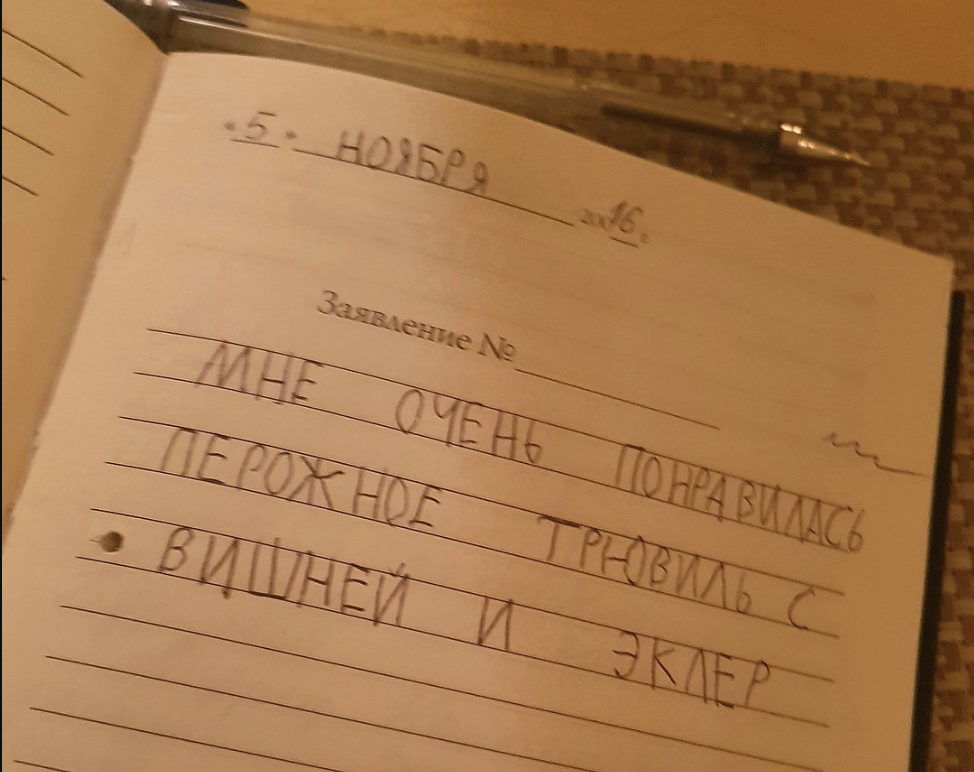 «5» НОЯБРЯ 20016 г.
Заявление №
МНЕ ОЧЕНЬ ПОНРАВИЛАСЬ
ПЕРОЖНОЕ ТРЮВИЛЬ С
ВИШНЕЙ И ЭКЛЕР